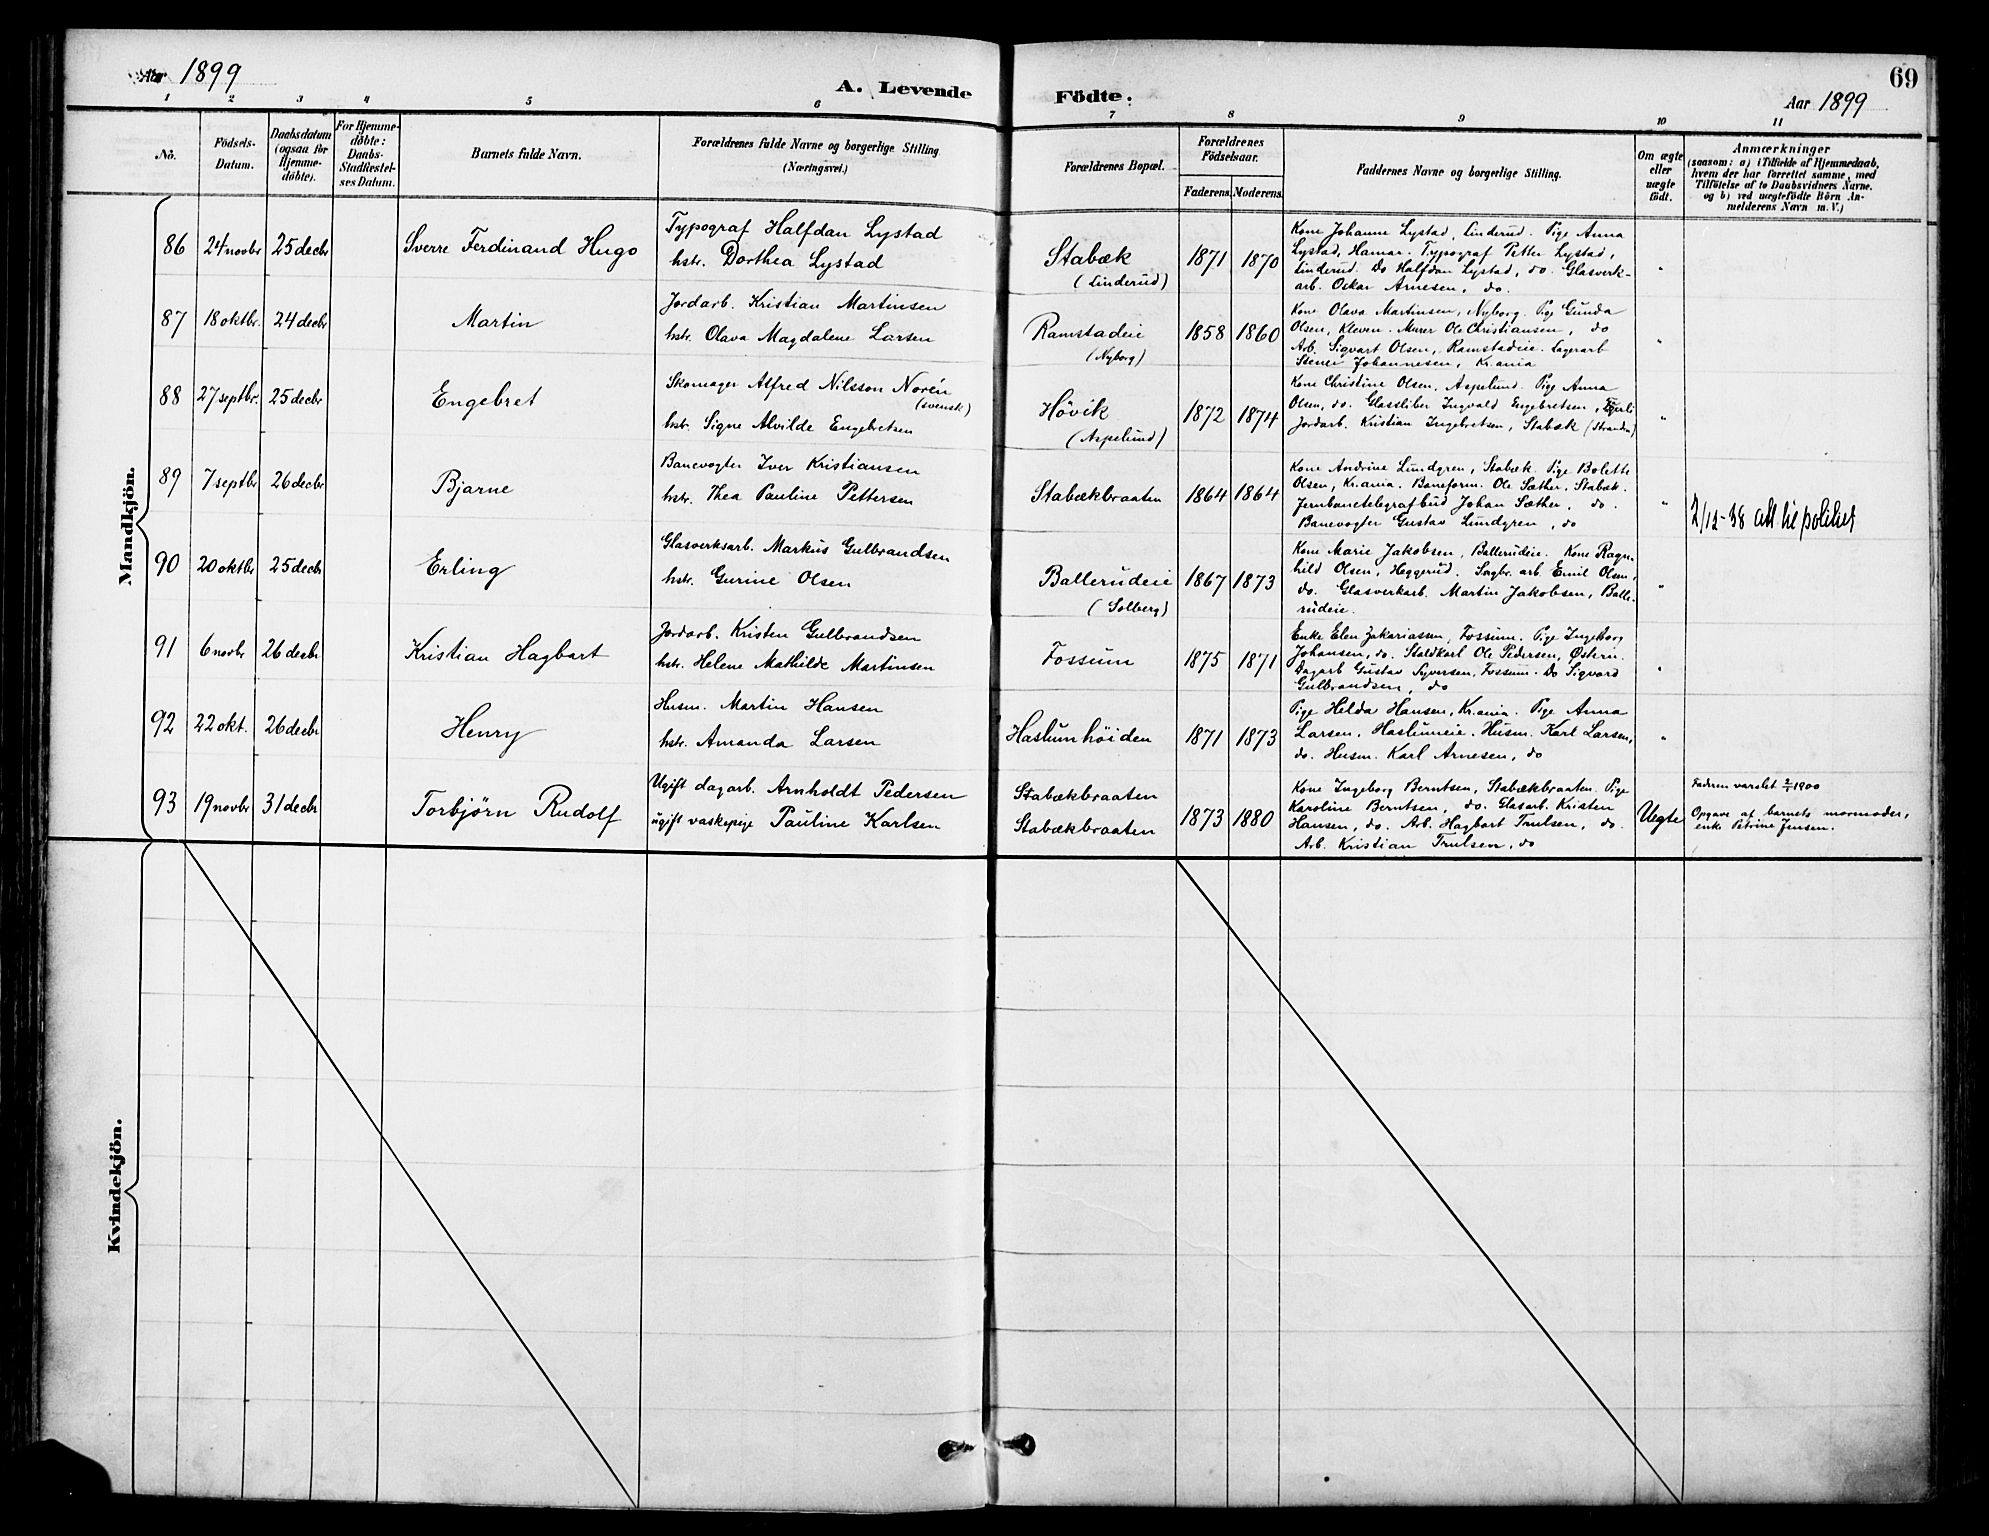 Aar 1899
A. Levende Födte.
69
Aar 1899
1 2 3 4 5 6 7 8 9 10 11
No.
Födsels-
Datum.
Daabsdatum
(ogsaa for
Hjemme-
döbte).
For Hjemme-
döbte:
Daabs-
Stadfestel-
ses Datum.
Barnets fulde Navn.
Forældrenes fulde Navne og borgerlige Stilling
(Næringsvei.)
Forældrenes Bopæl.
Forældrenes
Födselsaar.
Faderens. Moderens.
Faddernes Navne og borgerlige Stilling.
Om ægte
eller
uægte
födt.
Anmærkninger
(saasom: a) i Tilfælde af Hjemmedaab,
hvem der har forrettet samme, med
Tilföielse af to Daabsvidners Navne.
og b) ved uægtefödte Börn An-
melderens Navn m. V.)
Mandkjön.
86 24 novbr 25 decbr Sverre Ferdinand Hugo
Typograf Halfdan Lystad
hstr. Dorthea Lystad
Stabæk
(Linderud)
1871 1870
Kone Johanne Lystad, Linderud. Pige Anna
Lystad, Hamar. Typograf Petter Lystad,
Linderud. Do Halfdan Lystad, do. Glasverk-
arb. Oskar Arnesen, do.
"
87 18 oktbr. 24 decbr Martin
Jordarb. Kristian Martinsen
hstr. Olava Magdalene Larsen
Ramstadeie
(Nyborg)
1858 1860
Kone Olava Martinsen, Nyborg. Pige Gunda
Olsen, Kleven. Murer Ole Christiansen, do
Arb. Sigvart Olsen, Ramstadeie. Lagerarb
Steiner Johannesen, Kr.ania
"
88 27 septbr. 25 decbr Engebret
Skomager Alfred Nilsson Norén
(svensk)
hstr. Signe Alvilde Engebretsen
Hövik
(Aspelund)
1872 1874
Kone Christine Olsen, Aspelund. Pige Anna
Olsen, do. Glassliber Ingvald Engebretsen,
Jordarb. Kristian Ingebretsen, Stabæk (Stranden)
"
89 7 septbr 26 decbr Bjarne
Banevogter Iver Kristiansen
hstr. Thea Pauline Pettersen
Stabækbraaten
1864 1864
Kone Andrine Lundgren, Stabæk. Pige Bolette
Olsen, Kr.ania. Baneform. Ole Sæther, Stabæk.
Jernbanetelegrafbud Johan Sæther, do.
Banevogter Gustav Lundgren, do
"
2/12-38 att til politiet
90 20 oktbr 25 decbr Erling
Glasverksarb. Markus Gulbrandsen
hstr. Gurine Olsen
Ballerudeie
(Solberg)
1867 1873
Kone Marie Jakobsen, Ballerudeie. Kone Ragn-
hild Olsen, Heggerud. Sagbr. arb. Emil Olsen,
do. Glasverkarb. Martin Jakobsen, Balle-
rudeie.
"
91 6 novbr 26 decbr Kristian Hagbart
Jordarb. Kristen Gulbrandsen
hstr. Helene Mathilde Martinsen
Fossum
1875 1871
Enke Elen Zakariassen, Fossum. Pige Ingeborg
Johansen, do. Staldkarl Ole Pedersen, Østern.
Dagarb Gustav Syversen, Fossum. Do Sigvard
Gulbrandsen, do
"
92 22 okt. 26 decbr Henry
Husm. Martin Hansen
hstr. Amanda Larsen
Haslumhöiden
1871 1873
Pige Helda Hansen, Kr.ania. Pige Anna
Larsen, Haslumeie. Husm. Karl Larsen,
do. Husm. Karl Arnesen, do
"
93 19 novbr 31 decbr Torbjørn Rudolf
Ugift dagarb. Arnholdt Pedersen
ugift vaskepige Pauline Karlsen
Stabækbraaten
Stabækbraaten
1873 1880
Kone Ingeborg Berntsen, Stabækbraaten. Pige
Karoline Berntsen, do. Glasarb. Kristen
Hansen, do. Arb. Hagbart Trulsen, do.
Arb. Kristian Trulsen, do
Uegte
Faderen varslet 2/1 1900
Opgave af barnets mormoder,
enke Petrine Jensen.
Kvindekjön.